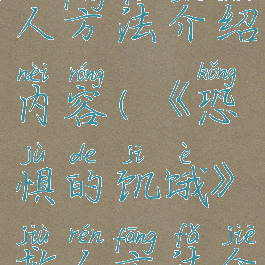 人方法介绍
nèi róng kǒng
内容(《恐
jù de jī è
惧的饥饿》
jiù rén fāng fǎ jiè
救人方法介